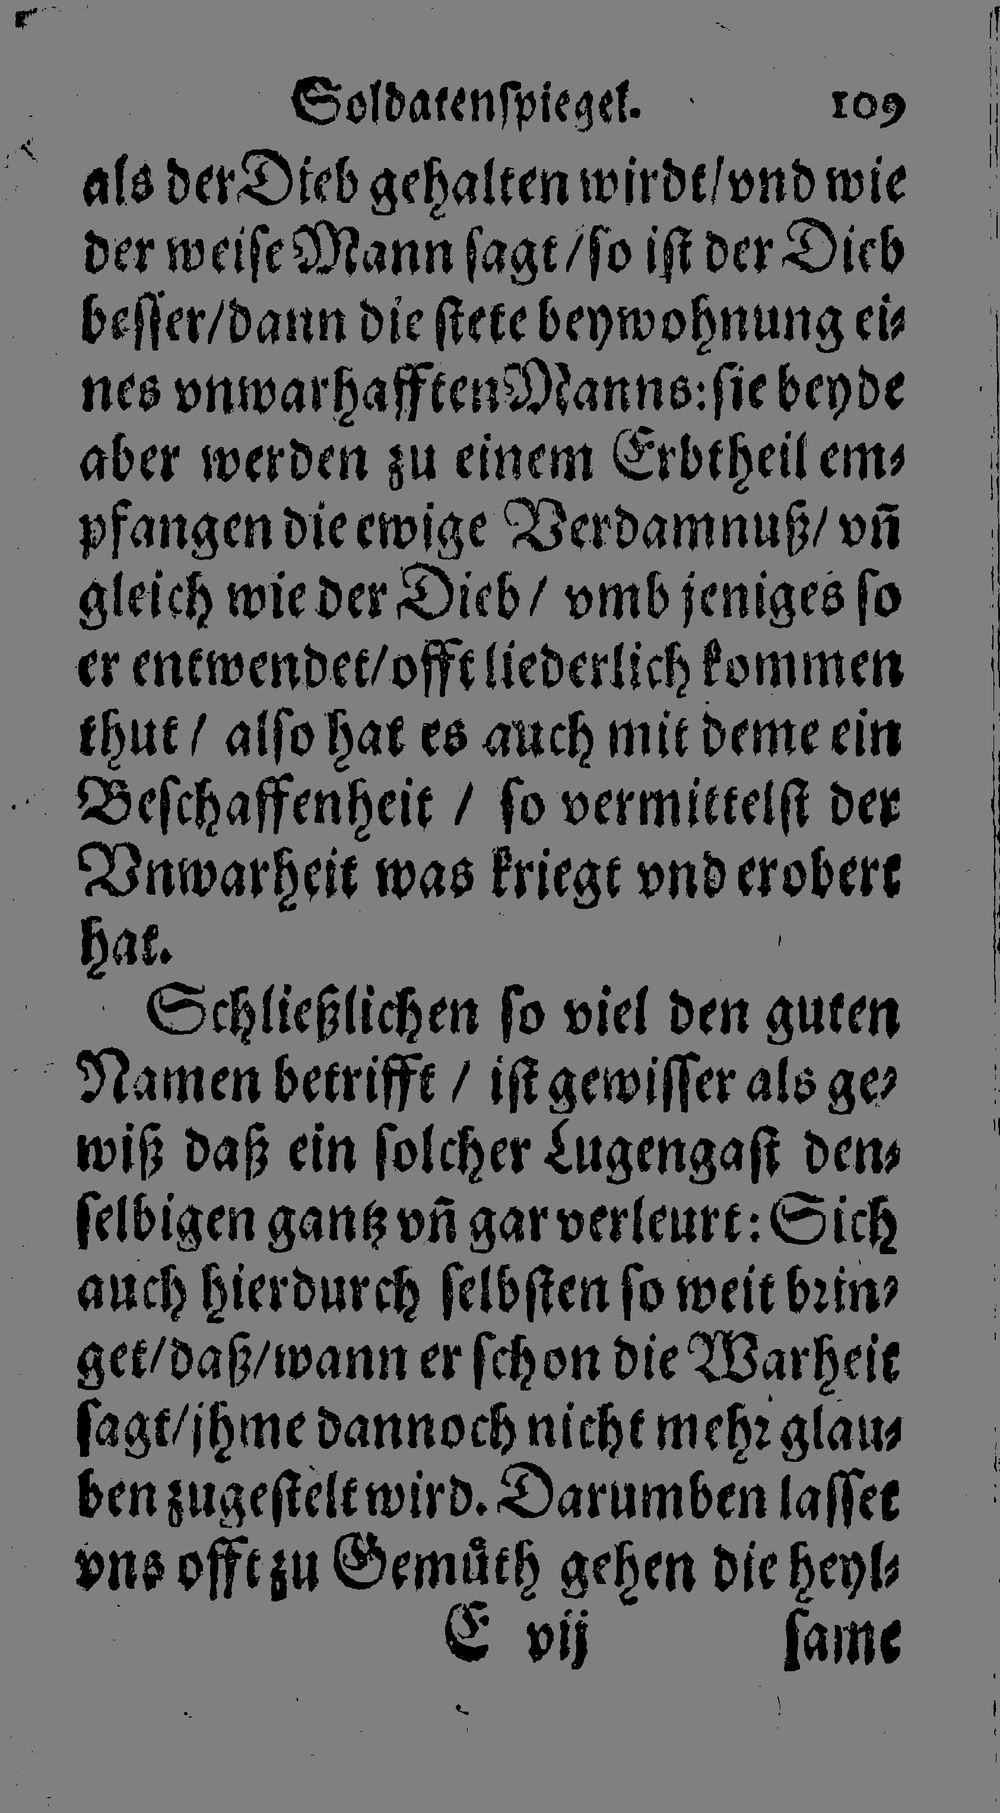 Soldatenſpiegel. 109
als der Dieb gehalten wirdt/vnd wie
der weiſe Mann ſagt/ſo iſt der Dieb
beſſer/dann die ſtete beywohnung ei⸗
nes vnwarhafften Manns: ſie beyde
aber werden zu einem Erbtheil em⸗
pfangen die ewige Verdamnuß/ vñ
gleich wie der Dieb/ vmb jeniges ſo
er entwendet/offt liederlich kommen
thut/ alſo hat es auch mit deme ein
Beſchaffenheit / ſo vermittelſt der
Vnwarheit was kriegt vnd erobert
hat.
Schließlichen ſo viel den guten
Namen betrifft / iſt gewiſſer als ge⸗
wiß daß ein ſolcher Lugengaſt den⸗
ſelbigen gantz vñ gar verleurt: Sich
auch hierdurch ſelbſten ſo weit brin⸗
get/daß/wann er ſchon die Warheit
ſagt/jhme dannoch nicht mehr glau⸗
ben zugeſtelt wird. Darumben laſſet
vns offt zu Gemuͤth gehen die heyl⸗
E vij ſame